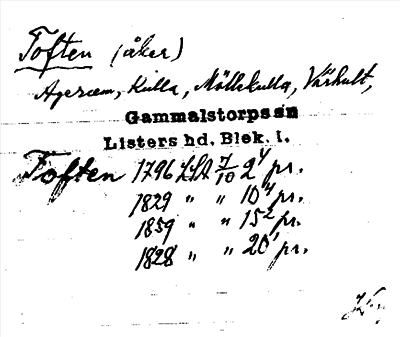 Toften (åker)
Agerum, Kulla, Möllekulla, Vårhult,
Gammalstorps sn
Listers hd, Blek. l.
Toften 1796 LSA 7/10 2⁴ pr.
1829 " " 10⁴ pr.
1859 " " 15² pr.
1828 " " 20¹ pr.